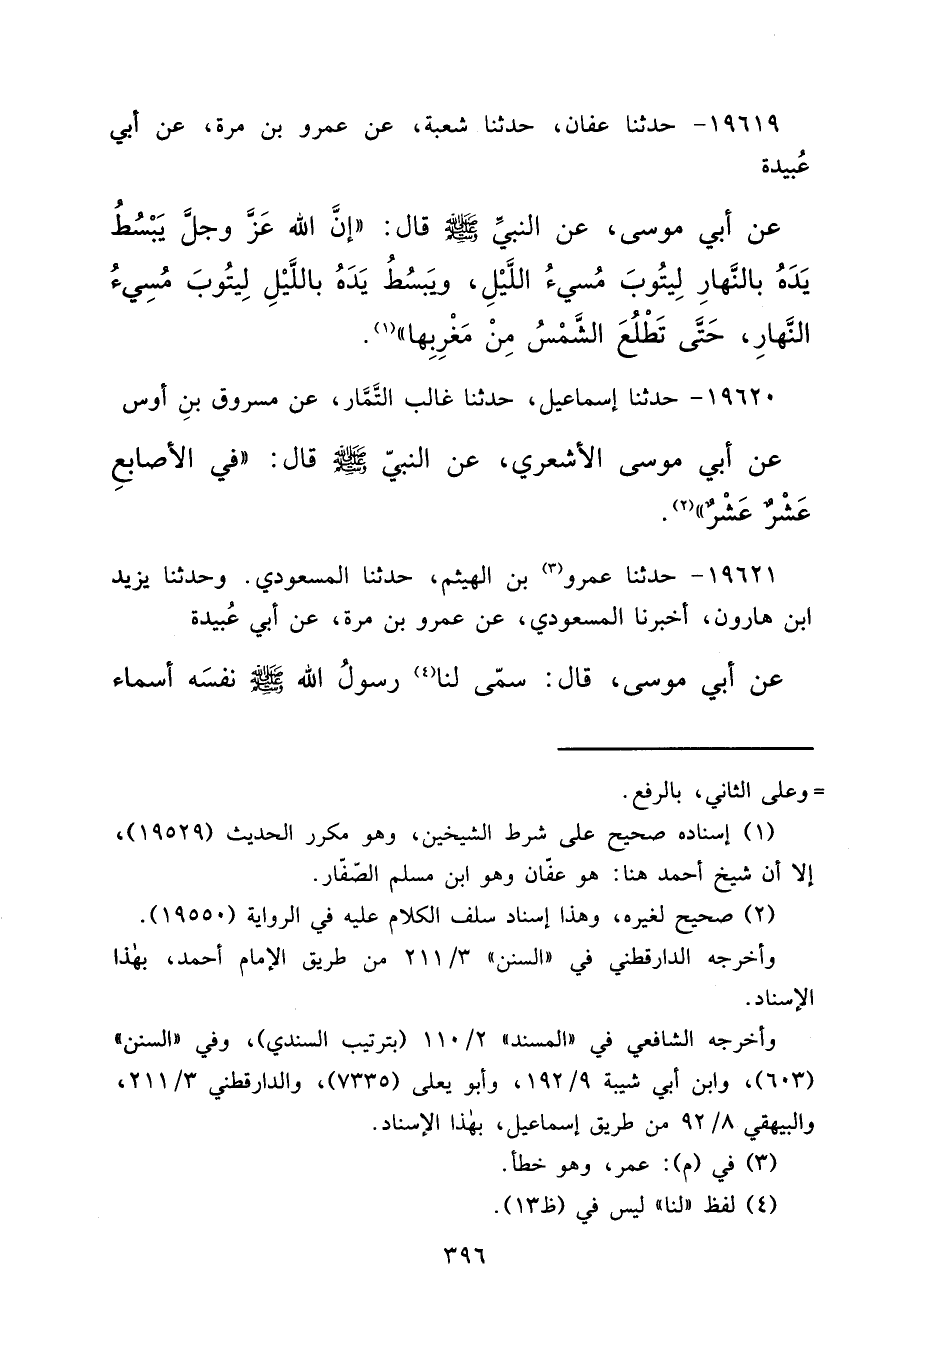 ١٩٦١٩- حدثنا عفان، حدثنا شعبة، عن عمرو بن مرة، عن أبي
عُبيدة
عن أبي موسى، عن النبيِّ ﷺ قال: «إنَّ الله عَزَّ وجلَّ يَبْسُطُ
يَدَهُ بالنَّهارِ لِيتُوبَ مُسيءُ اللَّيْلِ، ويَبسُطُ يَدَهُ باللَّيْلِ لِيتُوبَ مُسِيءُ
النَّهارِ، حَتَّى تَطْلُعَ الشَّمْسُ مِنْ مَغْرِبِها»(١).
١٩٦٢٠- حدثنا إسماعيل، حدثنا غالب التَّمَّار، عن مسروق بنِ أوس
عن أبي موسى الأشعري، عن النبيّ ﷺ قال: «في الأصابعِ
عَشْرٌ عَشْرٌ»(٢).
١٩٦٢١- حدثنا عمرو(٣) بن الهيثم، حدثنا المسعودي. وحدثنا يزيد
ابن هارون، أخبرنا المسعودي، عن عمرو بن مرة، عن أبي عُبيدة
عن أبي موسى، قال: سمّى لنا(٤) رسولُ الله ﷺ نفسَه أسماء
= وعلى الثاني، بالرفع.
(١) إسناده صحيح على شرط الشيخين، وهو مكرر الحديث (١٩٥٢٩)،
إلا أن شيخ أحمد هنا: هو عفّان وهو ابن مسلم الصّفّار.
(٢) صحيح لغيره، وهذا إسناد سلف الكلام عليه في الرواية (١٩٥٥٠).
وأخرجه الدارقطني في «السنن» ٢١١/٣ من طريق الإمام أحمد، بهٰذا
الإسناد.
وأخرجه الشافعي في «المسند» ١١٠/٢ (بترتيب السندي)، وفي «السنن»
(٦٠٣)، وابن أبي شيبة ١٩٢/٩، وأبو يعلى (٧٣٣٥)، والدارقطني ٢١١/٣،
والبيهقي ٩٢/٨ من طريق إسماعيل، بهٰذا الإسناد.
(٣) في (م): عمر، وهو خطأ.
(٤) لفظ «لنا» ليس في (ظ١٣).
٣٩٦